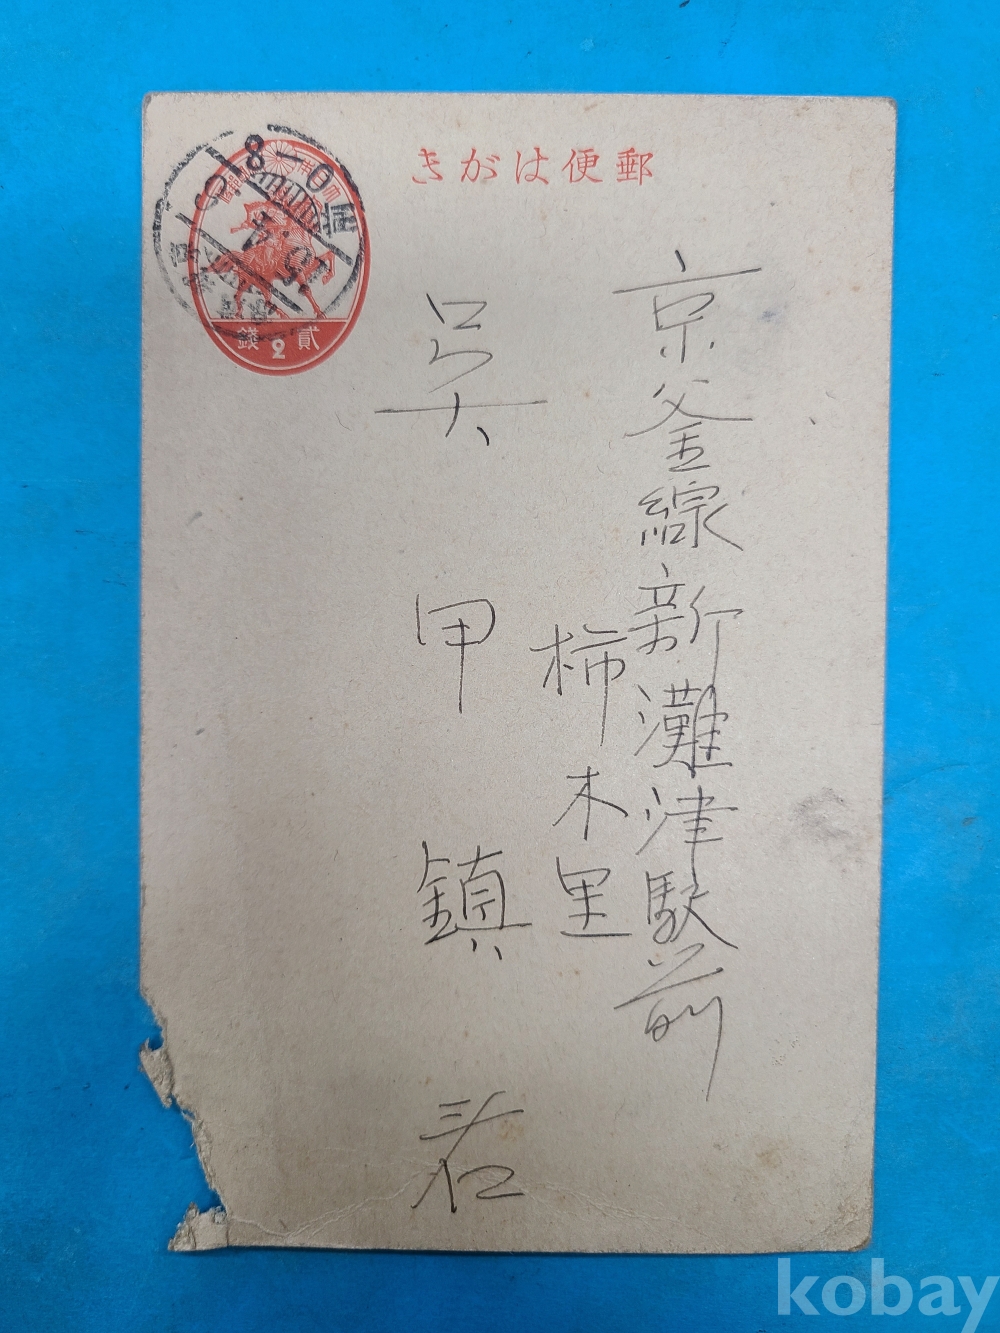 郵便はがき
京釜線新灘津駅前
柿木里
吳甲鎮君
貳2錢
8-0
15.4
kobay